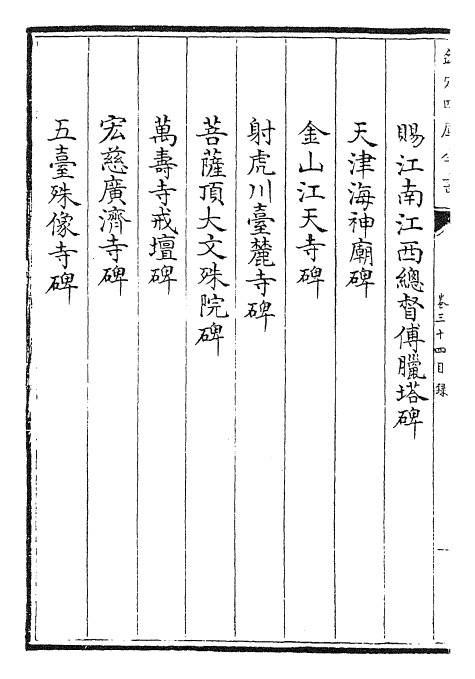 欽定四庫全書
卷三十四目録
賜江南江西總督傅臘塔碑
天津海神廟碑
金山江天寺碑
射虎川臺麓寺碑
菩薩頂大文殊院碑
萬壽寺戒壇碑
宏慈廣濟寺碑
五臺殊像寺碑